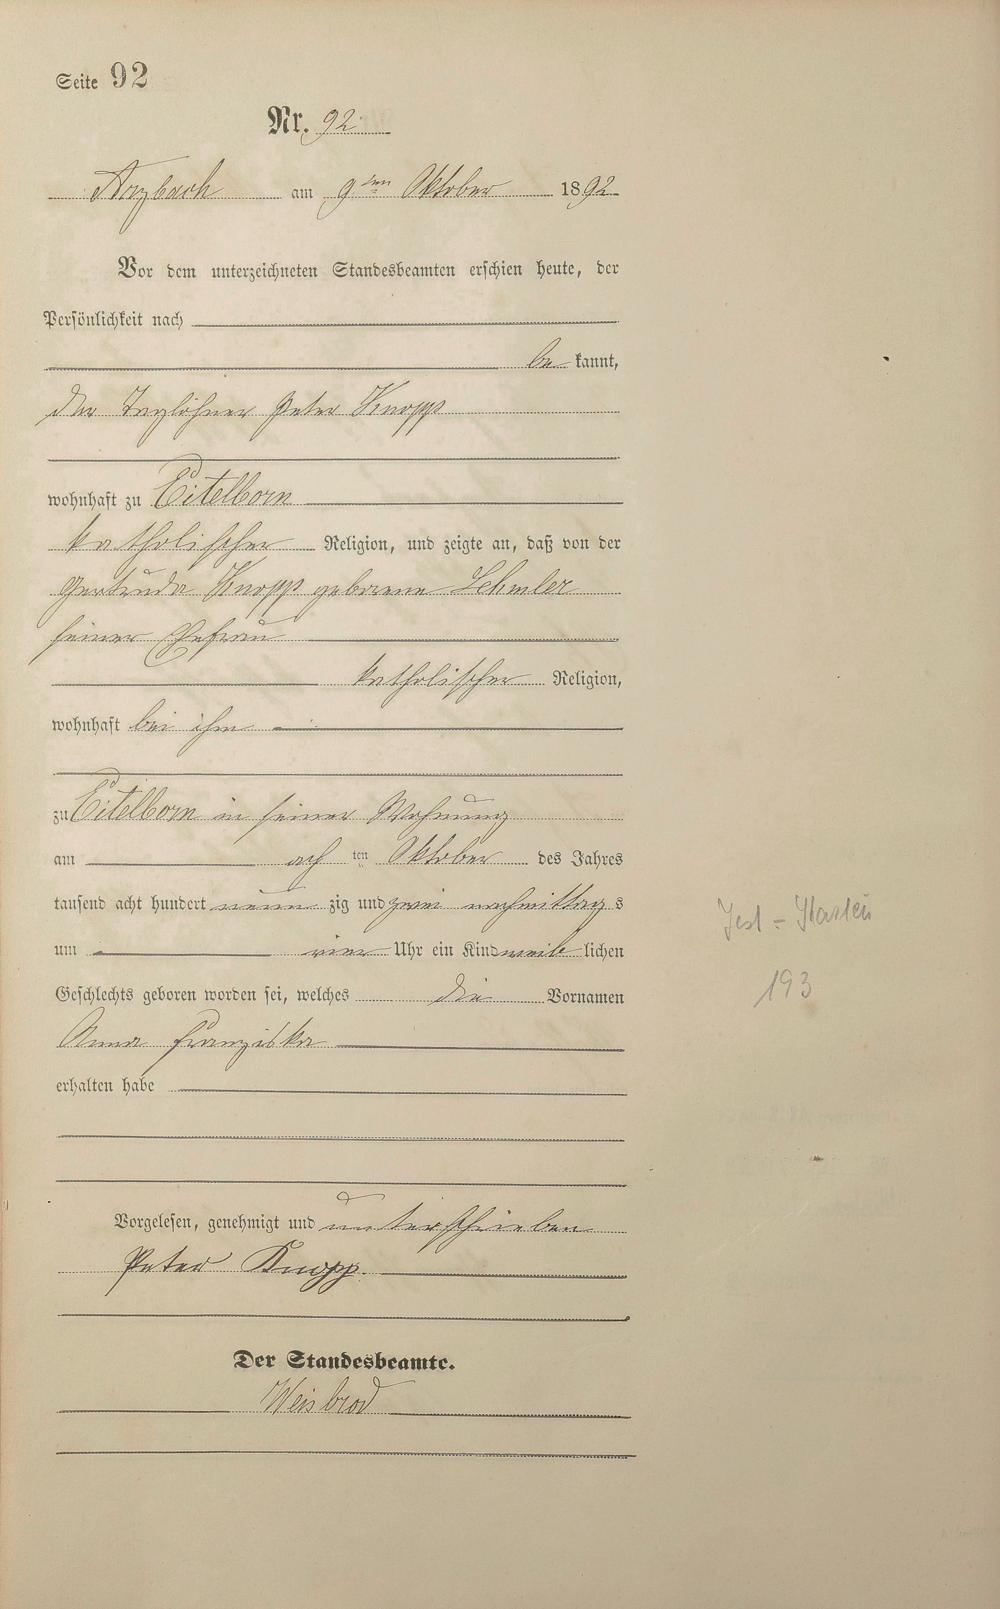 Seite 92
Nr. 92
Arzbach am 9ten Oktober 1892
Vor dem unterzeichneten Standesbeamten erschien heute, der
Persönlichkeit nach
be kannt,
der Taglöhner Peter Knopp
wohnhaft zu Eitelborn
katholischer Religion, und zeigte an, daß von der
Gertrude Knopp geborene Lehmler
seiner Ehefrau
katholischer Religion,
wohnhaft bei ihm
zu Eitelborn in seiner Wohnung
am ach ten Oktober des Jahres
tausend acht hundert neun zig und zwei nachmittag s
um vier Uhr ein Kind weib lichen
Geschlechts geboren worden sei, welches die Vornamen
Anna Franziska
erhalten habe
Vorgelesen, genehmigt und unterschrieben
Peter Knopp.
Der Standesbeamte.
Weisbrod
193